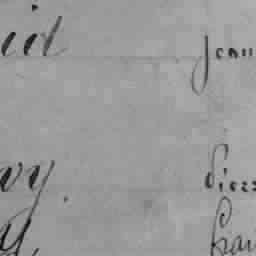 id Jean
vy Pierr
y Fran